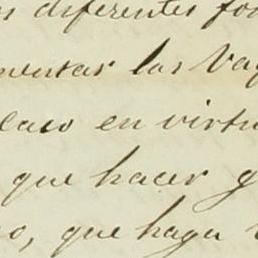 diferentes fo
mentar las Va
en virtu
que hacer g
o, que haga